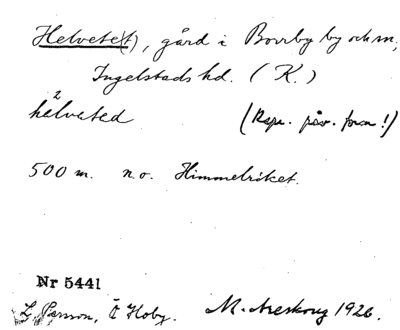 Helvetet(t), gård i Borrby by och sn,
Ingelstads hd. (K.)
2
hälveted (Rspr. form!)
500 m. n.o. Himmelriket.
Nr 5441
L. Persson, Ö Hoby. M. Areskoug 1926.